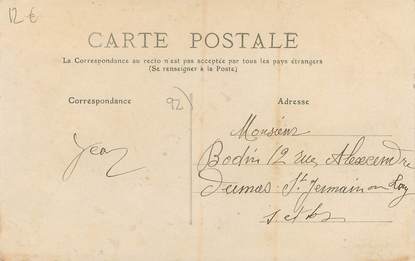 12 €
CARTE POSTALE
La Correspondance au recto n'est pas acceptée par tous les pays étrangers
(Se renseigner à la Poste)
Correspondance
92)
Adresse
Monsieur
Jean
Bodin 12 rue Alexandre
Dumas. St Germain en Lay
S. et O.